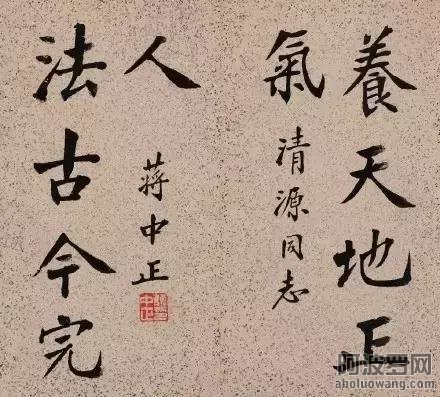 養天地正
氣
清源同志
法古今完
人
蔣中正
阿波罗网
aboluowang.com